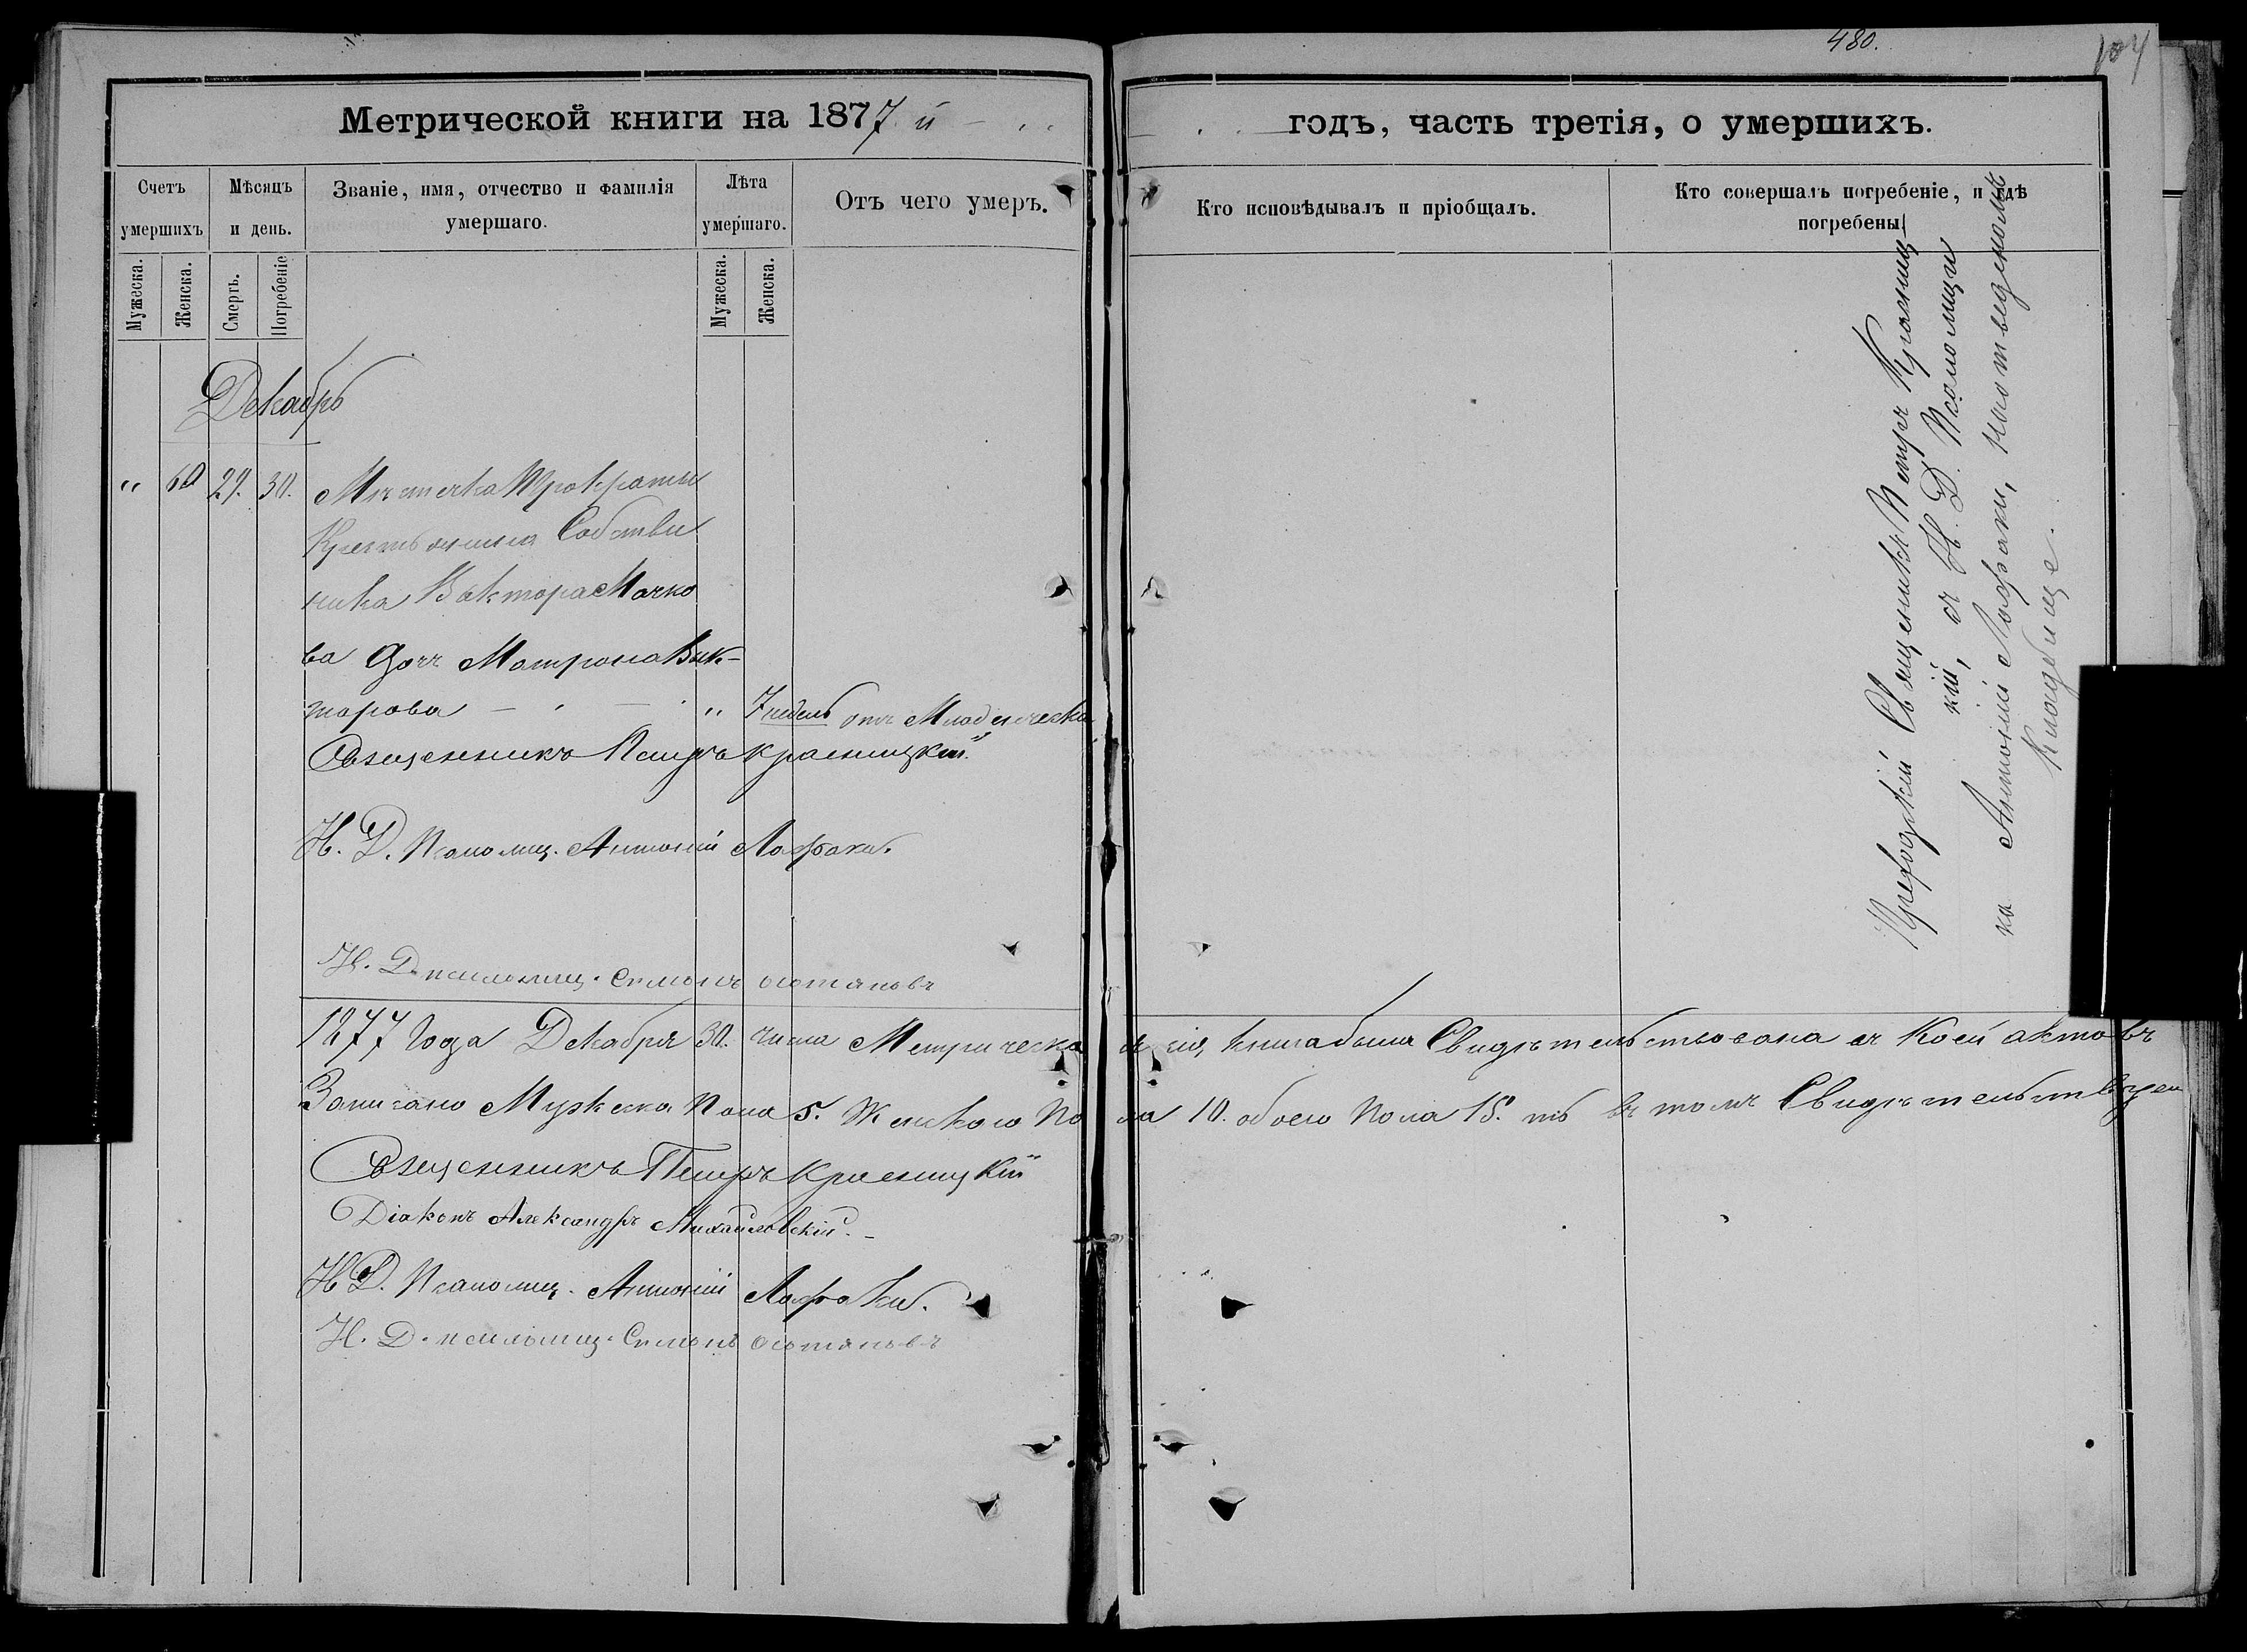 480.
104
Метрической книги на 1877 й
годъ, часть третія, о умершихъ.
Счетъ умершихъ
Мѣсяцъ и день.
Званіе, имя, отчество и фамилія умершаго.
Лѣта умершаго.
Отъ чего умеръ.
Кто исповѣдывалъ и пріобщалъ.
Кто совершалъ погребеніе, и гдѣ погребены.
Мужеска.
Женска.
Смерть.
Погребеніе
Мужеска.
Женска.
Декабрь
" 60 29. 30. Мѣстечка
Крестьянина Собствен
ника Виктора Мачко
ва дочь Матрона Вик-
торова - - " 7 недель отъ Младенческа
Священникъ Петръ Красницкій
Н. Д. Псаломщ. Антоній
Н. Д. псаломщ. Симонъ
Приходскій Священникъ Петръ Красниц-
кій, съ Н. Д. Псаломщи
ка Антоній, на отведеномъ
Кладбище.
1877 Года Декабря 30. числа Метрическа я сія книга была Свидѣтельствована въ Коей актовъ
Записано Мужеска Пола 5. Женскаго По ла 10. обоего Пола 15. въ томъ Свидѣтельствуем
Священникъ Петръ Красницкій
Діаконъ Александръ Михайловскій. -
Н Д. Псаломщ. Антоній
Н. Д. псаломщ. Симонъ